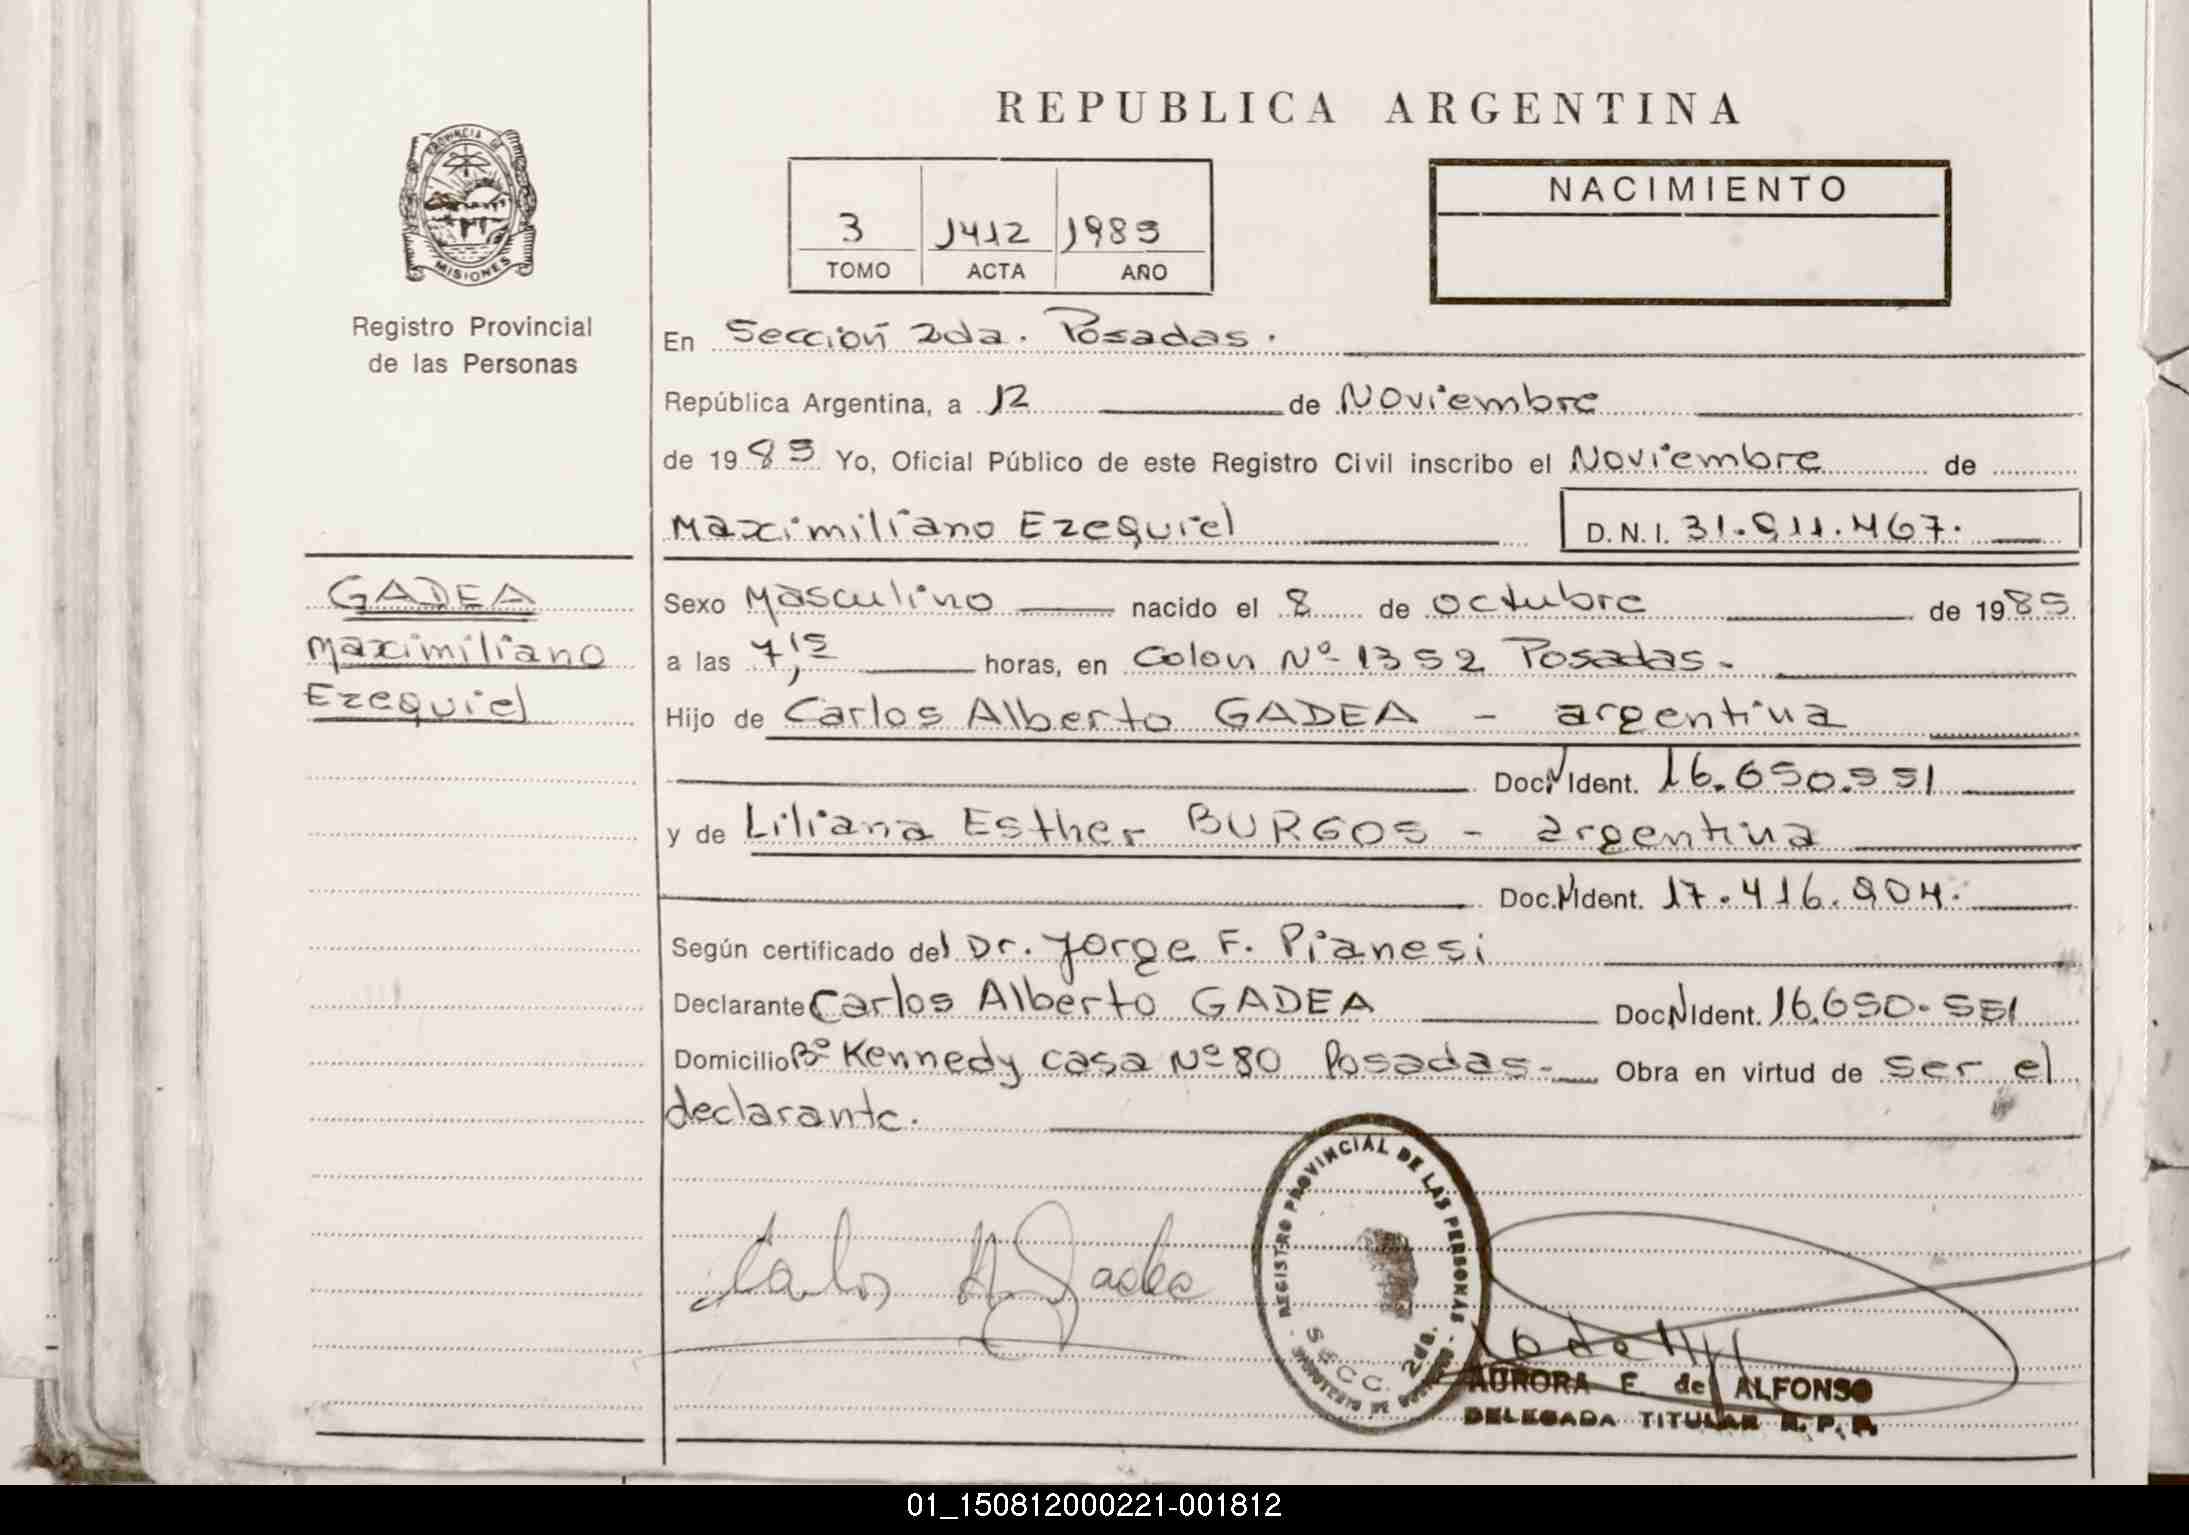 REPUBLICA ARGENTINA
PROVINCIA DE
MISIONES
Registro Provincial
de las Personas
3 1412 1985
TOMO ACTA AÑO
NACIMIENTO
En Sección 2da. Posadas.
República Argentina, a 12 de Noviembre
de 1985 Yo, Oficial Público de este Registro Civil inscribo el Noviembre de
Maximiliano Ezequiel D.N.I. 31.811.467.
GADEA
Maximiliano
Ezequiel
Sexo Masculino nacido el 8 de octubre de 1985
a las 7,15 horas, en Colon Nº 1352 Posadas.
Hijo de Carlos Alberto GADEA - argentina
Doc. N Ident. 16.650.551
y de Liliana Esther BURGOS - argentina
Doc. N Ident. 17.416.804.
Según certificado del Dr. Jorge F. Pianesi
Declarante Carlos Alberto GADEA Doc. N Ident. 16.650.551
Domicilio Bº Kennedy casa Nº 80 Posadas. Obra en virtud de ser el
declarante.
REGISTRO PROVINCIAL DE LAS PERSONAS
SECC. 2da.
Carlos A. Gadea
AURORA E. de ALFONSO
DELEGADA TITULAR R.P.P.
01_150812000221-001812